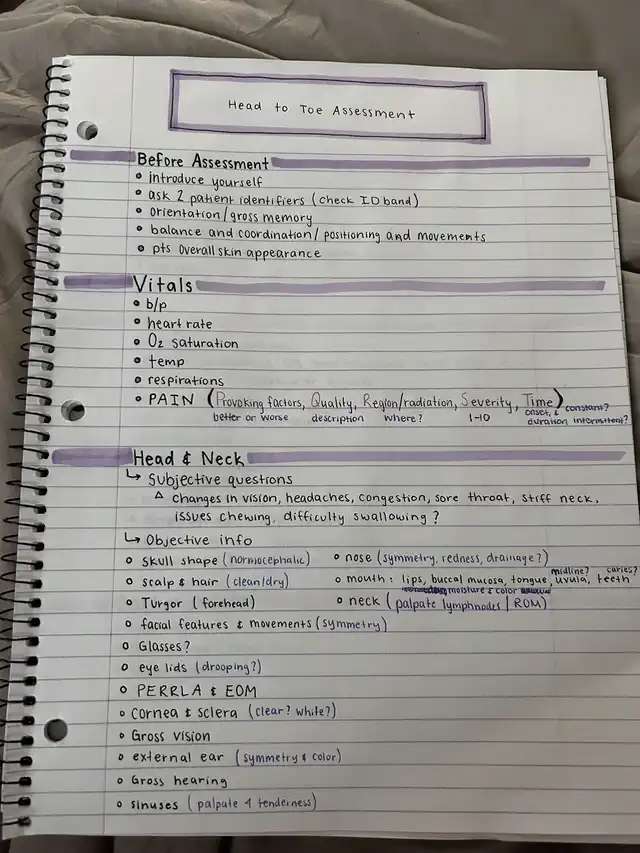 Head to Toe Assessment
Before Assessment
• introduce yourself
• ask 2 patient identifiers (check ID band)
• orientation/gross memory
• balance and coordination/ positioning and movements
• pts overall skin appearance
Vitals
• b/p
• heart rate
• O2 saturation
• temp
• respirations
• PAIN (Provoking factors, Quality, Region/radiation, Severity, Time)
better or worse description where? 1-10 onset, & constant?
duration intermittent?
Head & Neck
↳ Subjective questions
△ changes in vision, headaches, congestion, sore throat, stiff neck,
issues chewing, difficulty swallowing?
↳ Objective info
◦ skull shape (normocephalic) ◦ nose (symmetry, redness, drainage?)
midline? caries?
◦ scalp & hair (clean/dry) ◦ mouth: lips, buccal mucosa, tongue, uvula, teeth
moisture & color
◦ Turgor (forehead) ◦ neck (palpate lymphnodes | ROM)
◦ facial features & movements (symmetry)
◦ Glasses?
◦ eye lids (drooping?)
◦ PERRLA & EOM
◦ Cornea & sclera (clear? white?)
◦ Gross vision
◦ external ear (symmetry & color)
◦ Gross hearing
◦ sinuses (palpate 4 tenderness)